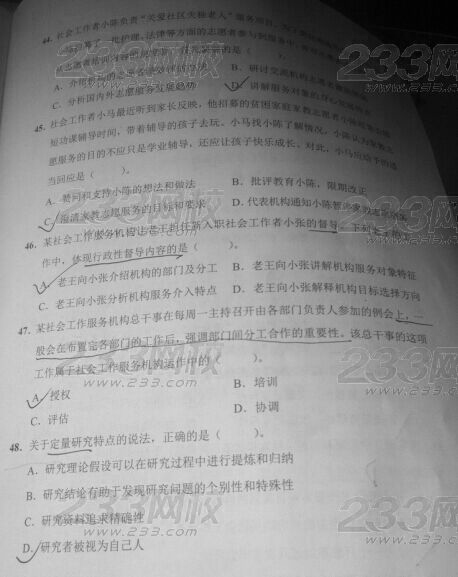 44. 社会工作者小陈负责“关爱社区失独老人”服务项目，为了
一批护理、法律等方面的志愿者参与到服务中
志愿者培训内容的
A. 介绍机构的志愿者
B. 研讨交流机构志愿者
C. 分析国内外志愿服务发展趋势
D. 讲解服务对象的身心发展特点
45. 社会工作者小马最近听到家长反映，他招募的贫困家庭家教志愿者小陈经常
短功课辅导时间，带着辅导的孩子去玩。小马找小陈了解情况，小陈认为家教志
愿服务的目的不应只是学业辅导，还应让孩子快乐成长。对此，小马应给予的适
当回应是（ ）。
A. 赞同和支持小陈的想法和做法
B. 批评教育小陈，限期改正
C. 澄清家教志愿服务的目标和要求
D. 代表机构通知小陈暂停家教志愿服务
46. 某社会工作服务机构让老王担任新入职社会工作者小张的督导，下列老王的工
作中，体现行政性督导内容的是（ ）。
A. 老王向小张介绍机构的部门及分工
B. 老王向小张讲解机构服务对象特征
C. 老王向小张分析机构服务介入特点
D. 老王向小张解释机构目标选择方向
47. 某社会工作服务机构总干事在每周一主持召开由各部门负责人参加的例会上，一
般会在布置完各部门的工作后，强调部门间分工合作的重要性。该总干事的这项
工作属于社会工作服务机构运作中的（ ）。
A. 授权
B. 培训
C. 评估
D. 协调
48. 关于定量研究特点的说法，正确的是（ ）。
A. 研究理论假设可以在研究过程中进行提炼和归纳
B. 研究结论有助于发现研究问题的个别性和特殊性
C. 研究资料追求精确性
D. 研究者被视为自己人
233网校
www.233.com